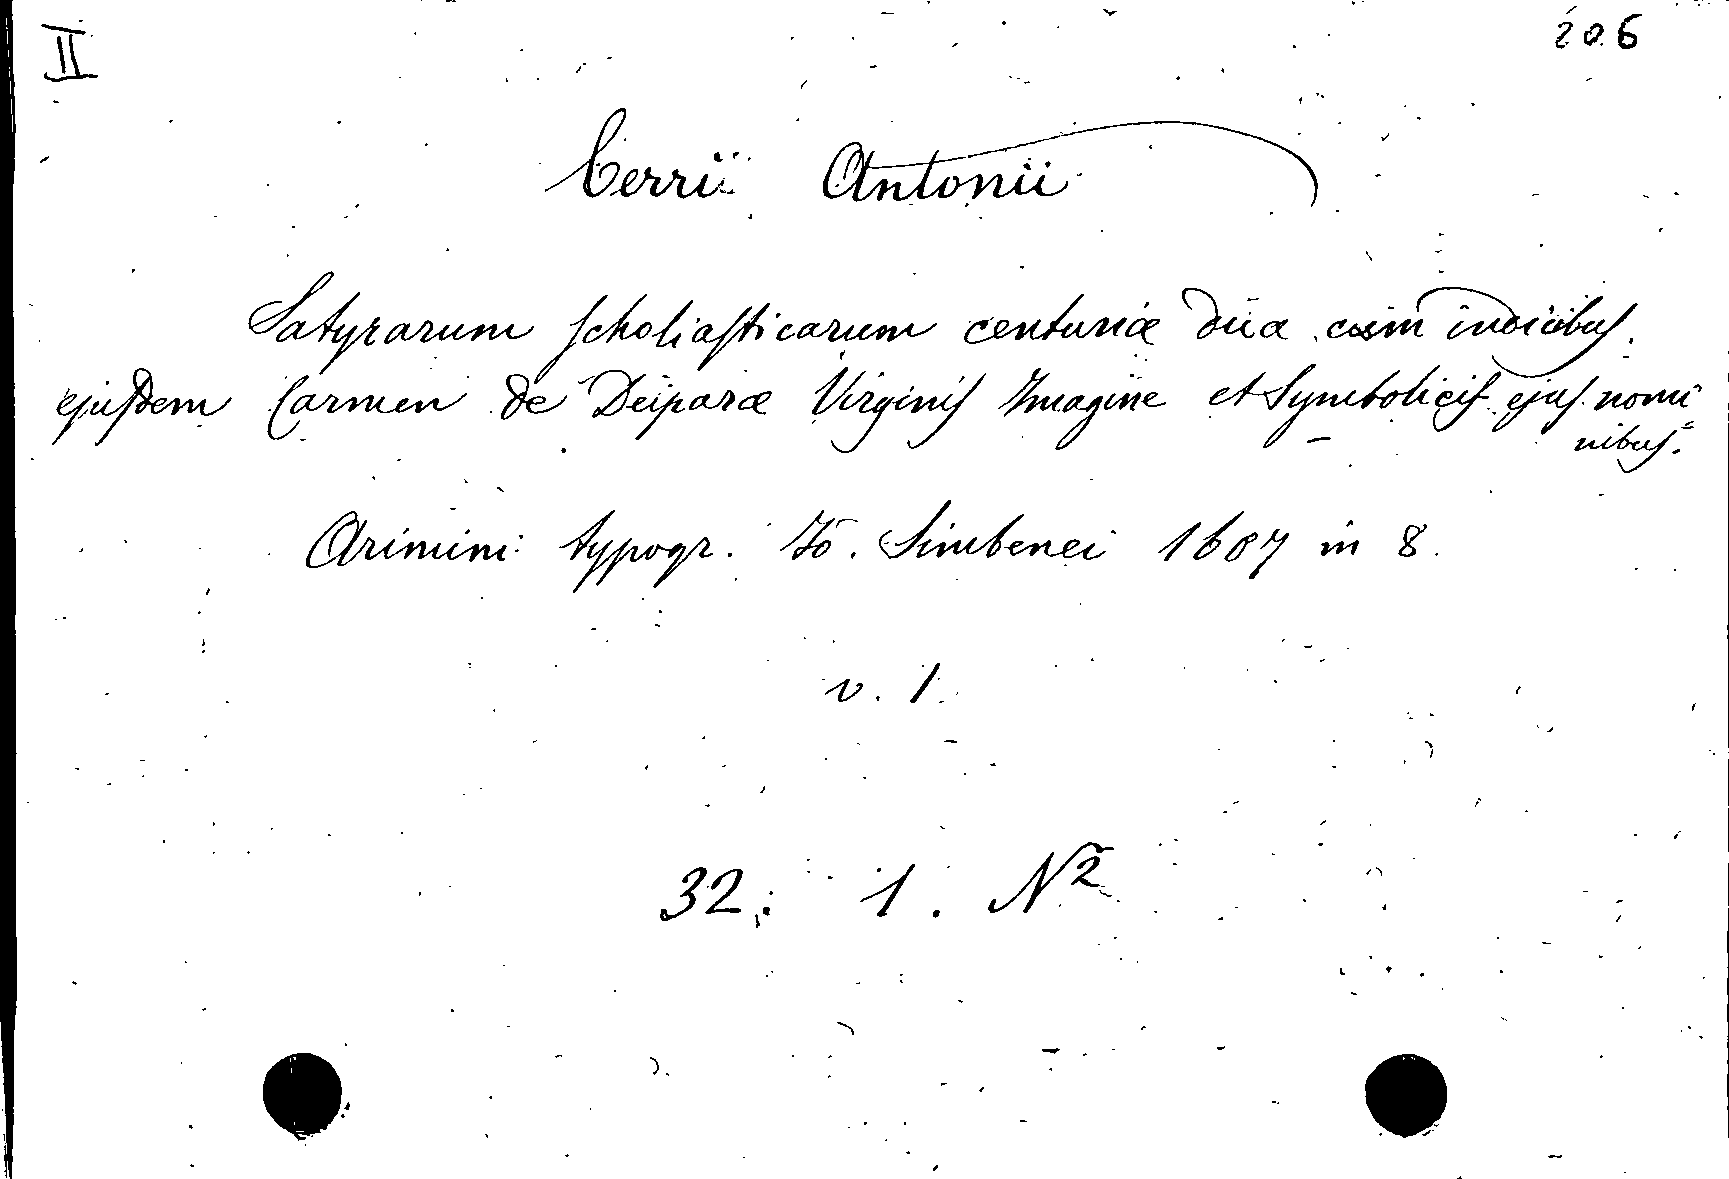 II
206
Cerrii Antonii
Satyrarum scholiasticarum centuriæ duæ cum indicibus.
ejusdem Carmen de Deiparæ Virginis Imagine et Symbolicis ejus nomi=
nibus.
Arimini typogr. Jo. Simbenei 1607 in 8.
v. 1.
32. 1. N2